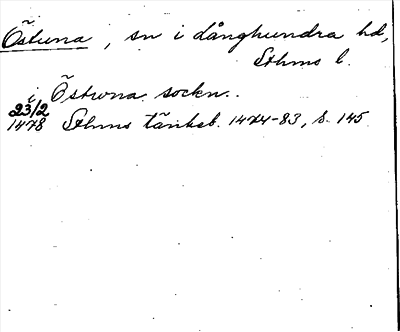 Östuna, sn i Långhundra hd,
Sthms l.
i Östwna sockn.
23/2
1478 Sthms tänkeb. 1474-83, s. 145